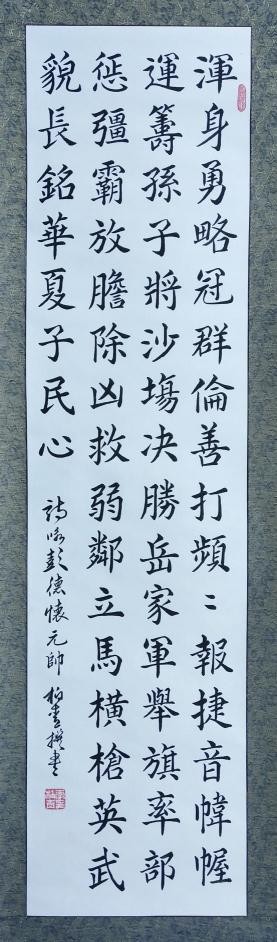 渾身勇略冠群倫善打頻〻報捷音幃幄
運籌孫子將沙塲决勝岳家軍舉旗率部
惩彊霸放膽除凶救弱鄰立馬橫槍英武
貌長銘華夏子民心
詩咏彭德懷元帥 撰書